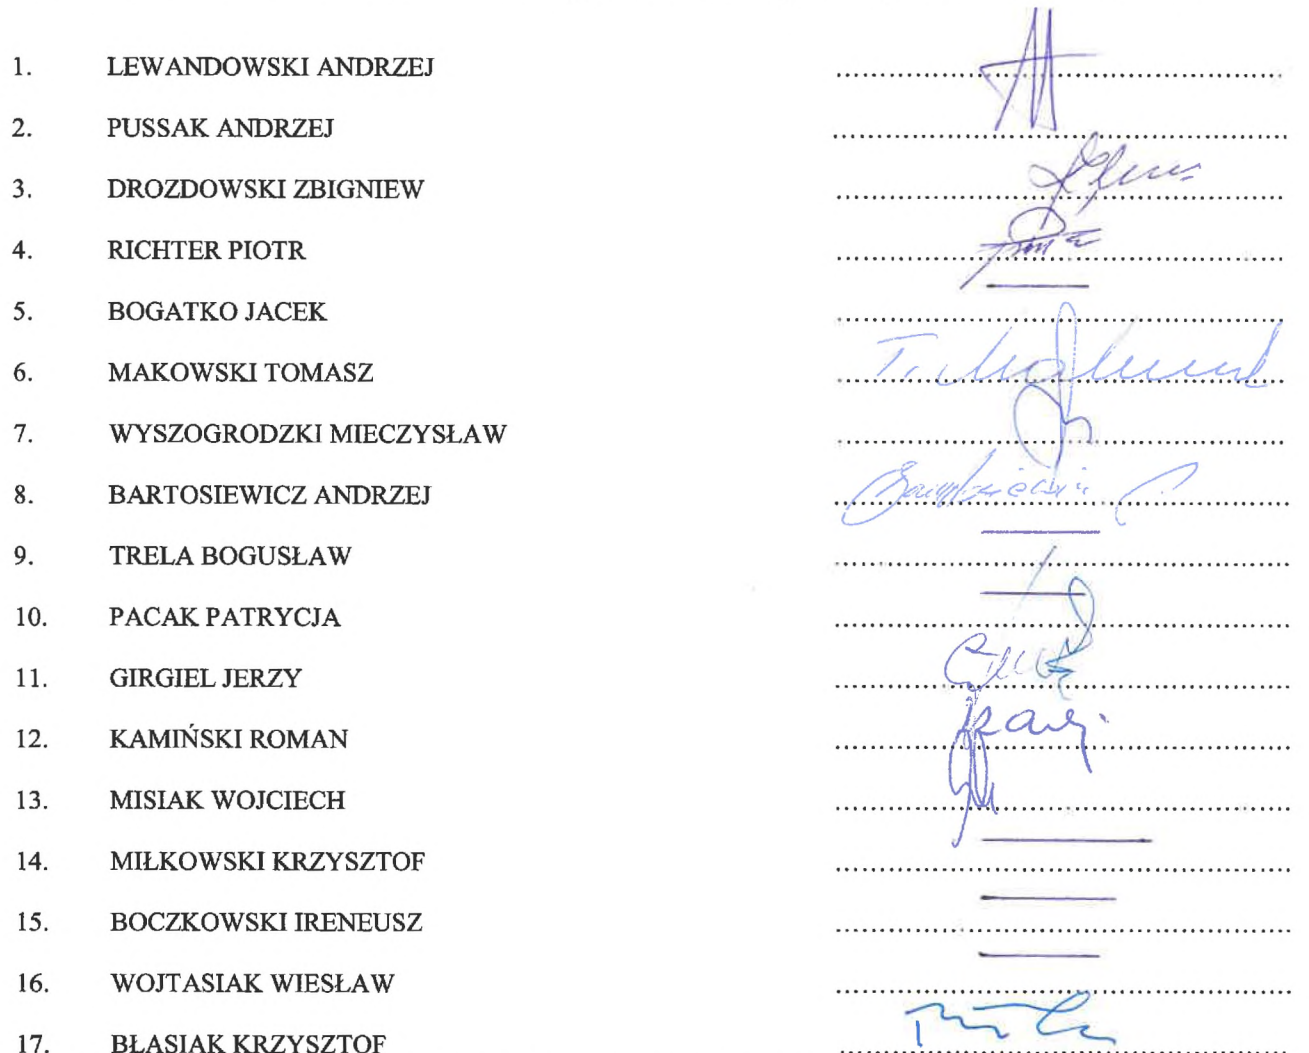 1. LEWANDOWSKI ANDRZEJ
2. PUSSAK ANDRZEJ
3. DROZDOWSKI ZBIGNIEW
4. RICHTER PIOTR
5. BOGATKO JACEK
6. MAKOWSKI TOMASZ
7. WYSZOGRODZKI MIECZYSŁAW
8. BARTOSIEWICZ ANDRZEJ
9. TRELA BOGUSŁAW
10. PACAK PATRYCJA
11. GIRGIEL JERZY
12. KAMIŃSKI ROMAN
13. MISIAK WOJCIECH
14. MIŁKOWSKI KRZYSZTOF
15. BOCZKOWSKI IRENEUSZ
16. WOJTASIAK WIESŁAW
17. BŁASIAK KRZYSZTOF